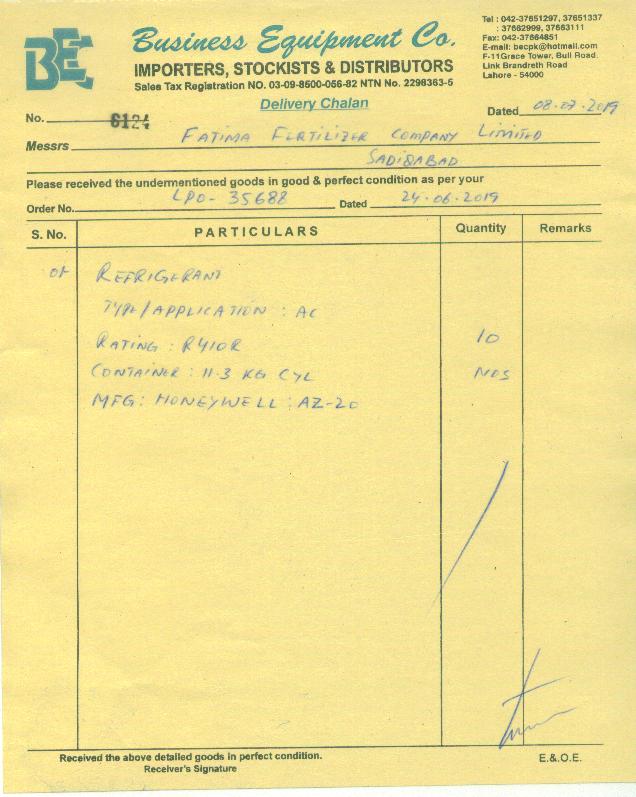 BE
Business Equipment Co.
IMPORTERS, STOCKISTS & DISTRIBUTORS
Sales Tax Registration NO. 03-09-8500-056-82 NTN No. 2298363-5
Tel : 042-37651297, 37651337
: 37662999, 37663111
Fax: 042-37664851
E-mail: becpk@hotmail.com
F-11Grace Tower, Bull Road,
Link Brandreth Road
Lahore - 54000
Delivery Chalan
No. 6124
Dated 08.07.2019
Messrs FATIMA FERTILIZER COMPANY LIMITED
SADIQABAD
Please received the undermentioned goods in good & perfect condition as per your
Order No. LPO- 35688 Dated 24.06.2019
S. No. PARTICULARS Quantity Remarks
01 REFRIGERANT
TYPE/APPLICATION : AC
RATING : R410R 10
CONTAINER : 11.3 KG CYL NOS
MFG: HONEYWELL : AZ-20
Received the above detailed goods in perfect condition.
Receiver's Signature
E.&.O.E.